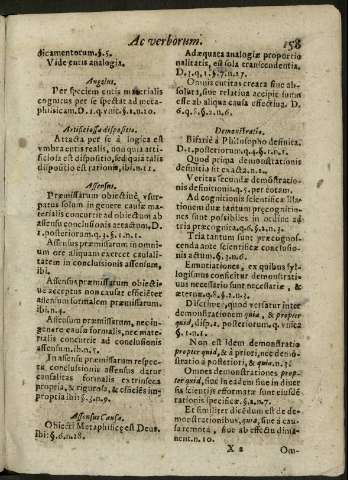 Ac verborum.
158
dicamentorum. §. 5.
Vide entis analogia.
Angelus.
Per speciem entis materialis
cognitus per se spectat ad meta-
phisicam. D. 1. q. vnic. §. 2. n. 10.
Artificiosa dispositio.
Attacta per se à logica est
vmbra entis realis, non quia arti-
ficiosa est dispositio, sed quia talis
dispositio est rationis, ibi. n. 11.
Assensus.
Præmissarum obiectiuè, vsur-
patus solum in genere causæ ma-
terialis concurrit ad obiectum ab
assensu conclusionis attactum, D.
1. posteriorum. q. 3. §. 1. n. 1.
Assensus præmissarum in omni-
um ore aliquam exercet causali-
tatem in conclusionis assensum,
ibi.
Assensus præmissarum obiecti-
uè acceptus non causat efficiẽter
assensum formalem præmissarum.
ibi. n. 4.
Assensum præmissarum, nec in
genere causæ formalis, nec mate-
rialis concurrit ad conclusionis
assensum. ib. n. 5.
In assensu præmissarum respec-
tu conclusionis assensus datur
causalitas formalis extrinseca
propria, & rigurosa, & efficiẽs im-
propria ibi §. 3. n. 9.
Assensus Causa.
Obiecti Metaphisicę est Deus.
ibi: §. 6. n. 28.
Adæquata analogiæ proportio
nalitatis, est sola transcendentia.
D. 1. q. 1. §. 7. n. 17.
Omnis entitas creata siue ab-
soluta, siue relatiua accipit suum
esse ab aliqua causa effectiua. D.
6. q. 5. §. 2. n. 6.
Demonstratio.
Bifariè à Philosopho definita.
D. 1. posteriorum. q. 4. §. 1. n. 1.
Quod prima demonstrationis
definitia sit exacta. n. 2.
Veritas secundæ demõstratio-
nis definitionis. q. 5. per totam.
Ad cognitionis scientificæ illa-
tionem duæ tantum præcognitio-
nes sunt possibiles in ordine ad
tria precognita. q. 6. §. 2. n. 3.
Tria tantum sunt præcognos-
cenda ante scientificæ conclusio-
nis actum. §. 3. n. 6.
Enuntiationes, ex quibus syl-
logismus conficitur demonstrati-
uus necessario sunt necessariæ, &
æternæ. q. 8. §. 2. n. 3.
Discrime, quod versatur inter
demonstrationem quia, & propter
quid, disp. 1. posteriorum. q. vnica
§. 1. n. 1.
Non est idem demonstratio
propter quid, & à priori, nec demõ-
stratio à posteriori, & quia. n. 3.
Omnes demonstrationes prop-
ter quid, siue in eadem siue in diuer
sis scientijs efformatæ sunt eiusdẽ
rationis specificæ. §. 2. n. 7.
Et similiter dicẽdum est de de-
monstrationibus, quia, siue à cau-
sa remota, siue ab effectu dima-
nent. n. 10.
X 2
Om-